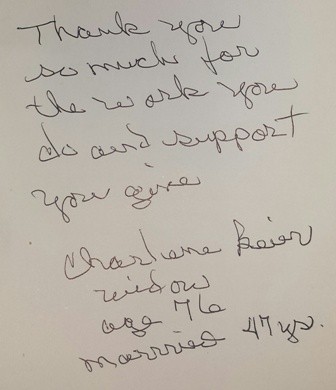 Thank you
so much for
the work you
do and support
you give
Charlene Keier
widow
age 76
married 47 yrs.